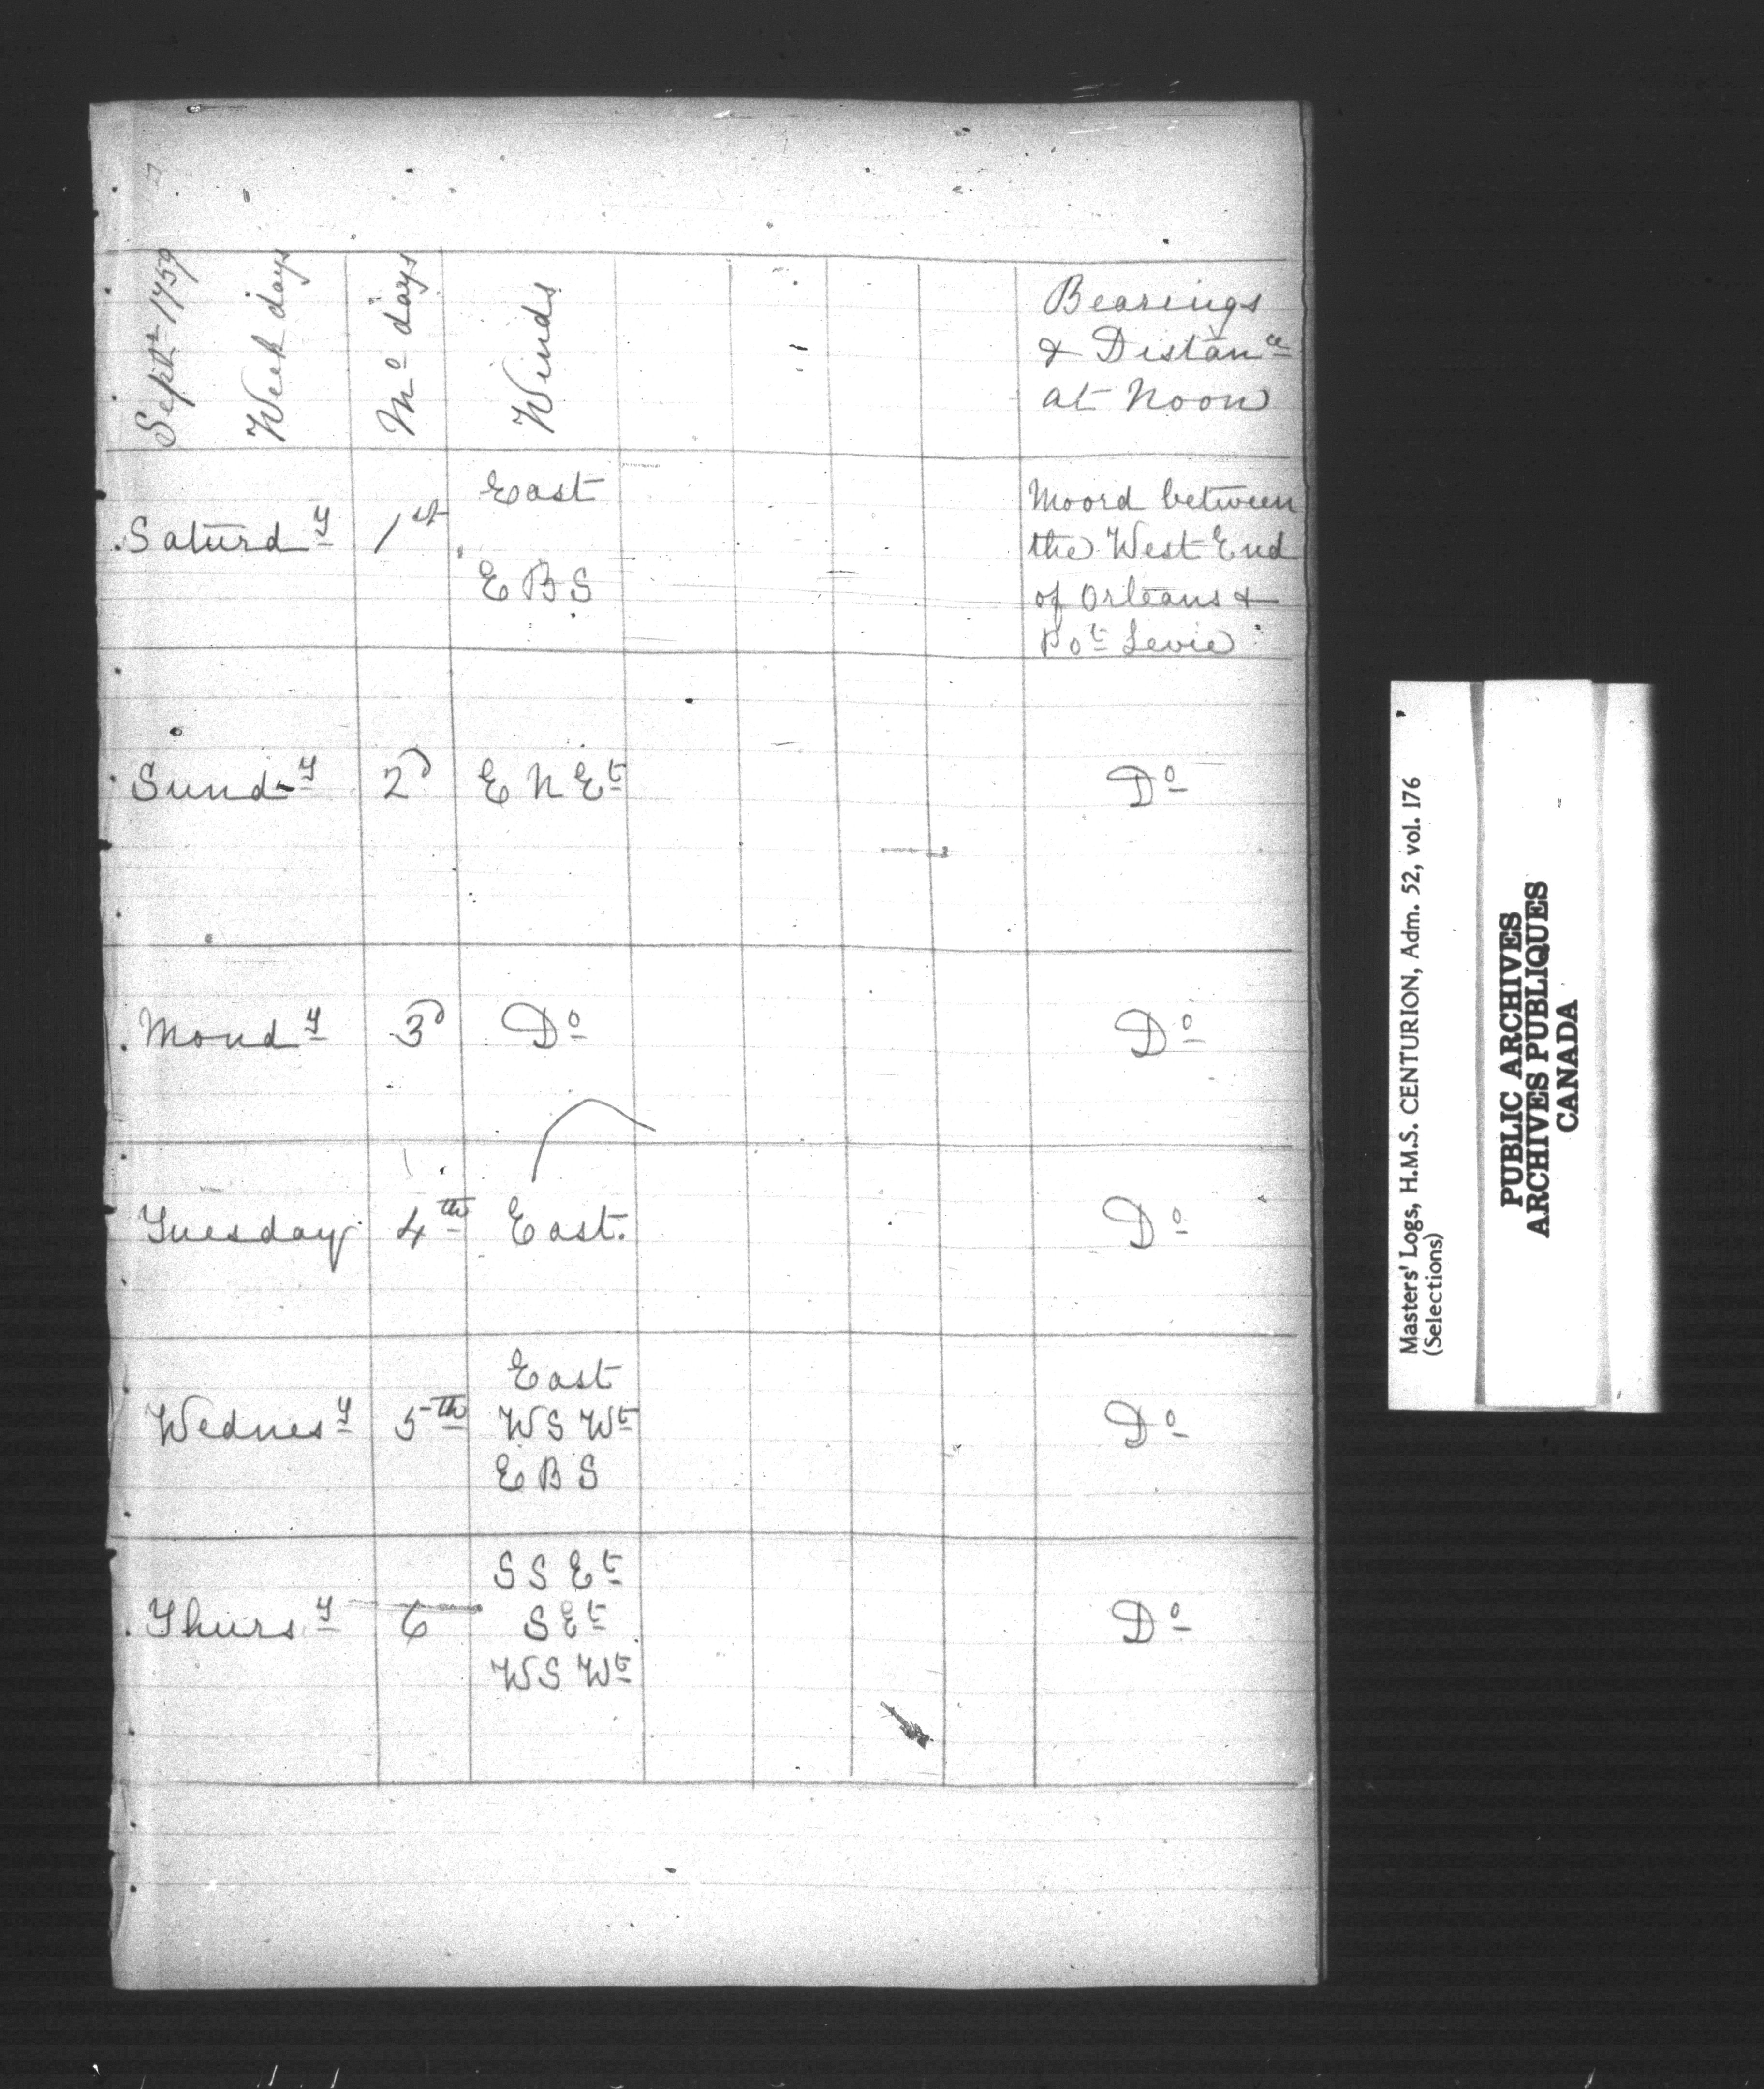 Septr 1759
Week days
Mo days
Winds
Bearings
& Distance
at Noon
Saturdy 1st
East
E B S
Moord between
the West End
of Orleans &
Pot Levie
Sundy 2d E N Et Do
Mondy 3d Do Do
Tuesday 4th East. Do
Wednesy 5th
East
W S Wt
E B S
Do
Thursy 6
S S Et
S Et
W S Wt
Do
Masters' Logs, H.M.S. CENTURION, Adm. 52, vol. 176
(Selections)
PUBLIC ARCHIVES
ARCHIVES PUBLIQUES
CANADA